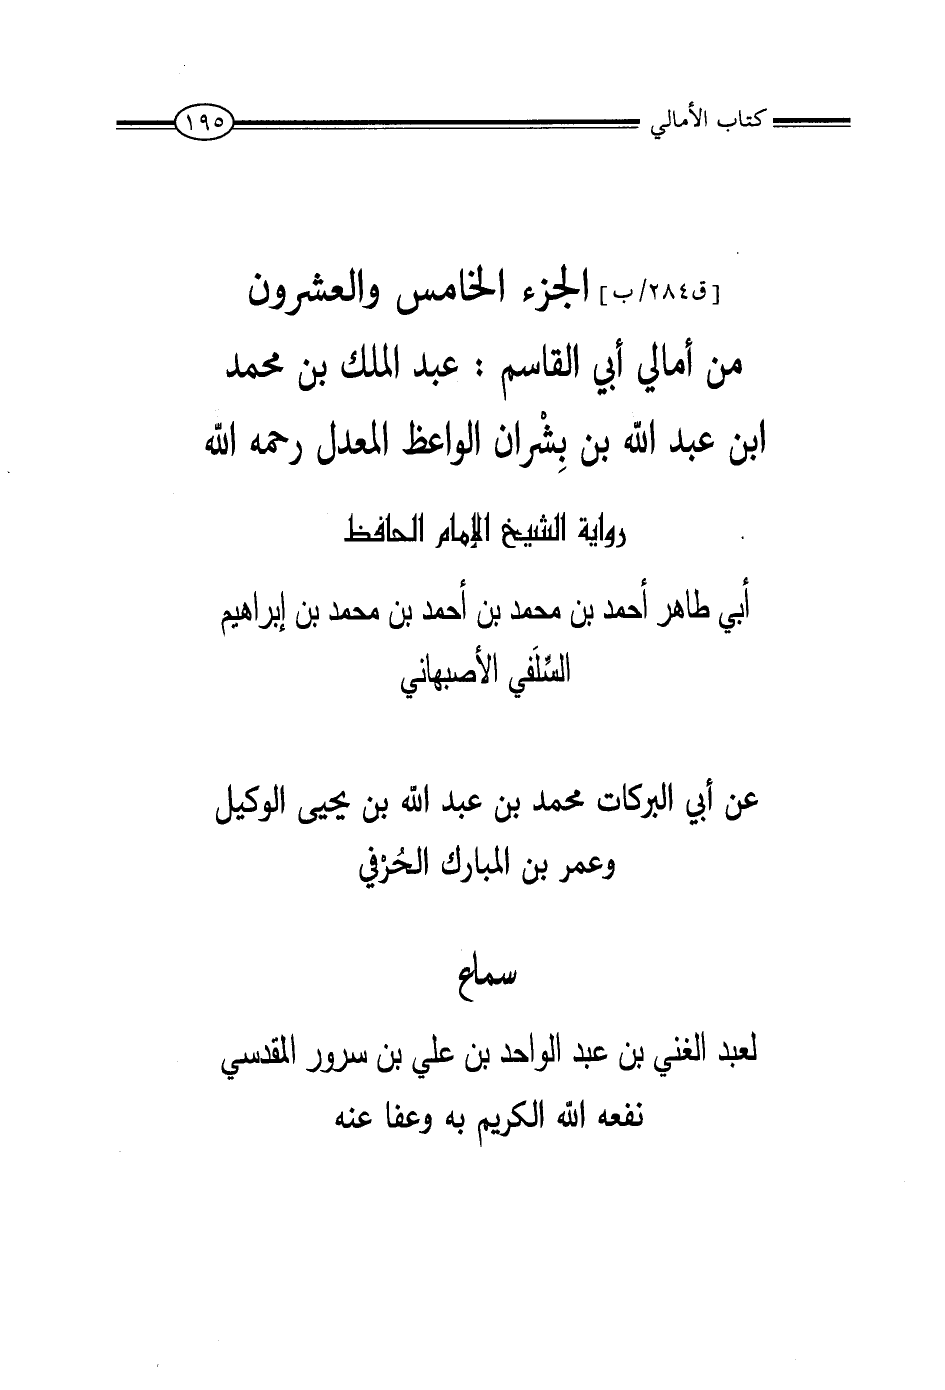 كتاب الأمالي ١٩٥
[ق٢٨٤/ب] الجزء الخامس والعشرون
من أمالي أبي القاسم : عبد الملك بن محمد
ابن عبد الله بن بِشْران الواعظ المعدل رحمه الله
رواية الشيخ الإمام الحافظ
أبي طاهر أحمد بن محمد بن أحمد بن محمد بن إبراهيم
السِّلَفي الأصبهاني
عن أبي البركات محمد بن عبد الله بن يحيى الوكيل
وعمر بن المبارك الخُرْفي
سماع
لعبد الغني بن عبد الواحد بن علي بن سرور المقدسي
نفعه الله الكريم به وعفا عنه